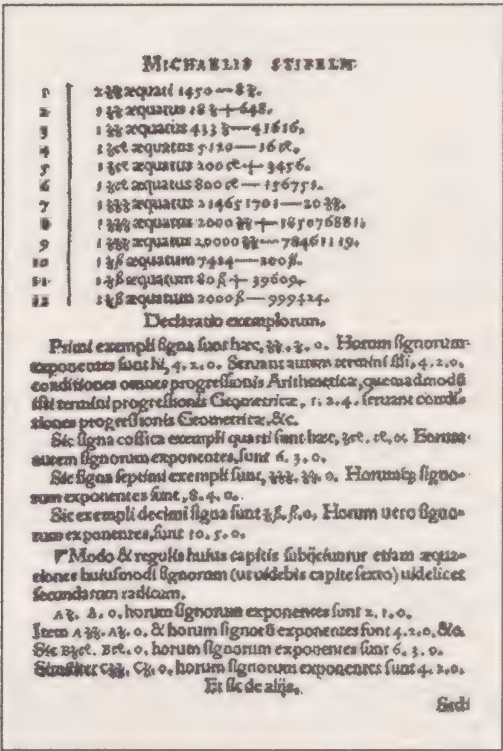 MICHAELIS STIFELII
1 2ʒʒ æquati 1450 — 8ʒ.
2 1ʒʒ æquatus 18ʒ + 648.
3 1ʒʒ æquatus 433ʒ — 41616.
4 1ʒce æquatus 5120 — 16ce.
5 1ʒce æquatus 200ce + 3456.
6 1ʒce æquatus 800ce — 156751.
7 1ʒʒʒ æquatus 214651701 — 20ʒʒ.
8 1ʒʒʒ æquatus 2000ʒʒ + 185076881.
9 1ʒʒʒ æquatus 20000ʒʒ — 78461119.
10 1ʒß æquatum 7424 — 200ß.
11 1ʒß æquatum 80ß + 39609.
12 1ʒß æquatum 2000ß — 999424.
Declaratio exemplorum.
Primi exempli signa sunt hæc, ʒʒ. ʒ. 0. Horum signorum
exponentes sunt hi, 4. 2. 0. Seruant autem termini isti, 4. 2. 0.
conditiones omnes progressionis Arithmeticæ, quemadmodũ
isti termini progressionis Geometricæ, 1. 2. 4. seruant condi-
tiones progressionis Geometricæ, &c.
Sic signa cossica exempli quarti sunt hæc, ʒce. ce. 0. Eorum
autem signorum exponentes, sunt 6. 3. 0.
Sic signa septimi exempli sunt, ʒʒʒ. ʒʒ. 0. Horumq; signo-
rum exponentes sunt, 8. 4. 0.
Sic exempli decimi signa sunt ʒß. ß. 0. Horum uero signo-
rum exponentes, sunt 10. 5. 0.
Modo & regulis huius capitis subijciuntur etiam æqua-
tiones huiusmodi signorum (ut uidebis capite sexto) uidelicet
secundarum radicum.
Aʒ. A. 0. horum signorum exponentes sunt 2. 1. 0.
Item Aʒʒ. Aʒ. 0. & horum signorũ exponentes sunt 4. 2. 0. &c.
Sic Bʒce. Bce. 0. horum signorum exponentes sunt 6. 3. 0.
Similiter Cʒʒ. Cʒ. 0. horum signorum exponentes sunt 4. 2. 0.
Et sic de alijs.
Sed